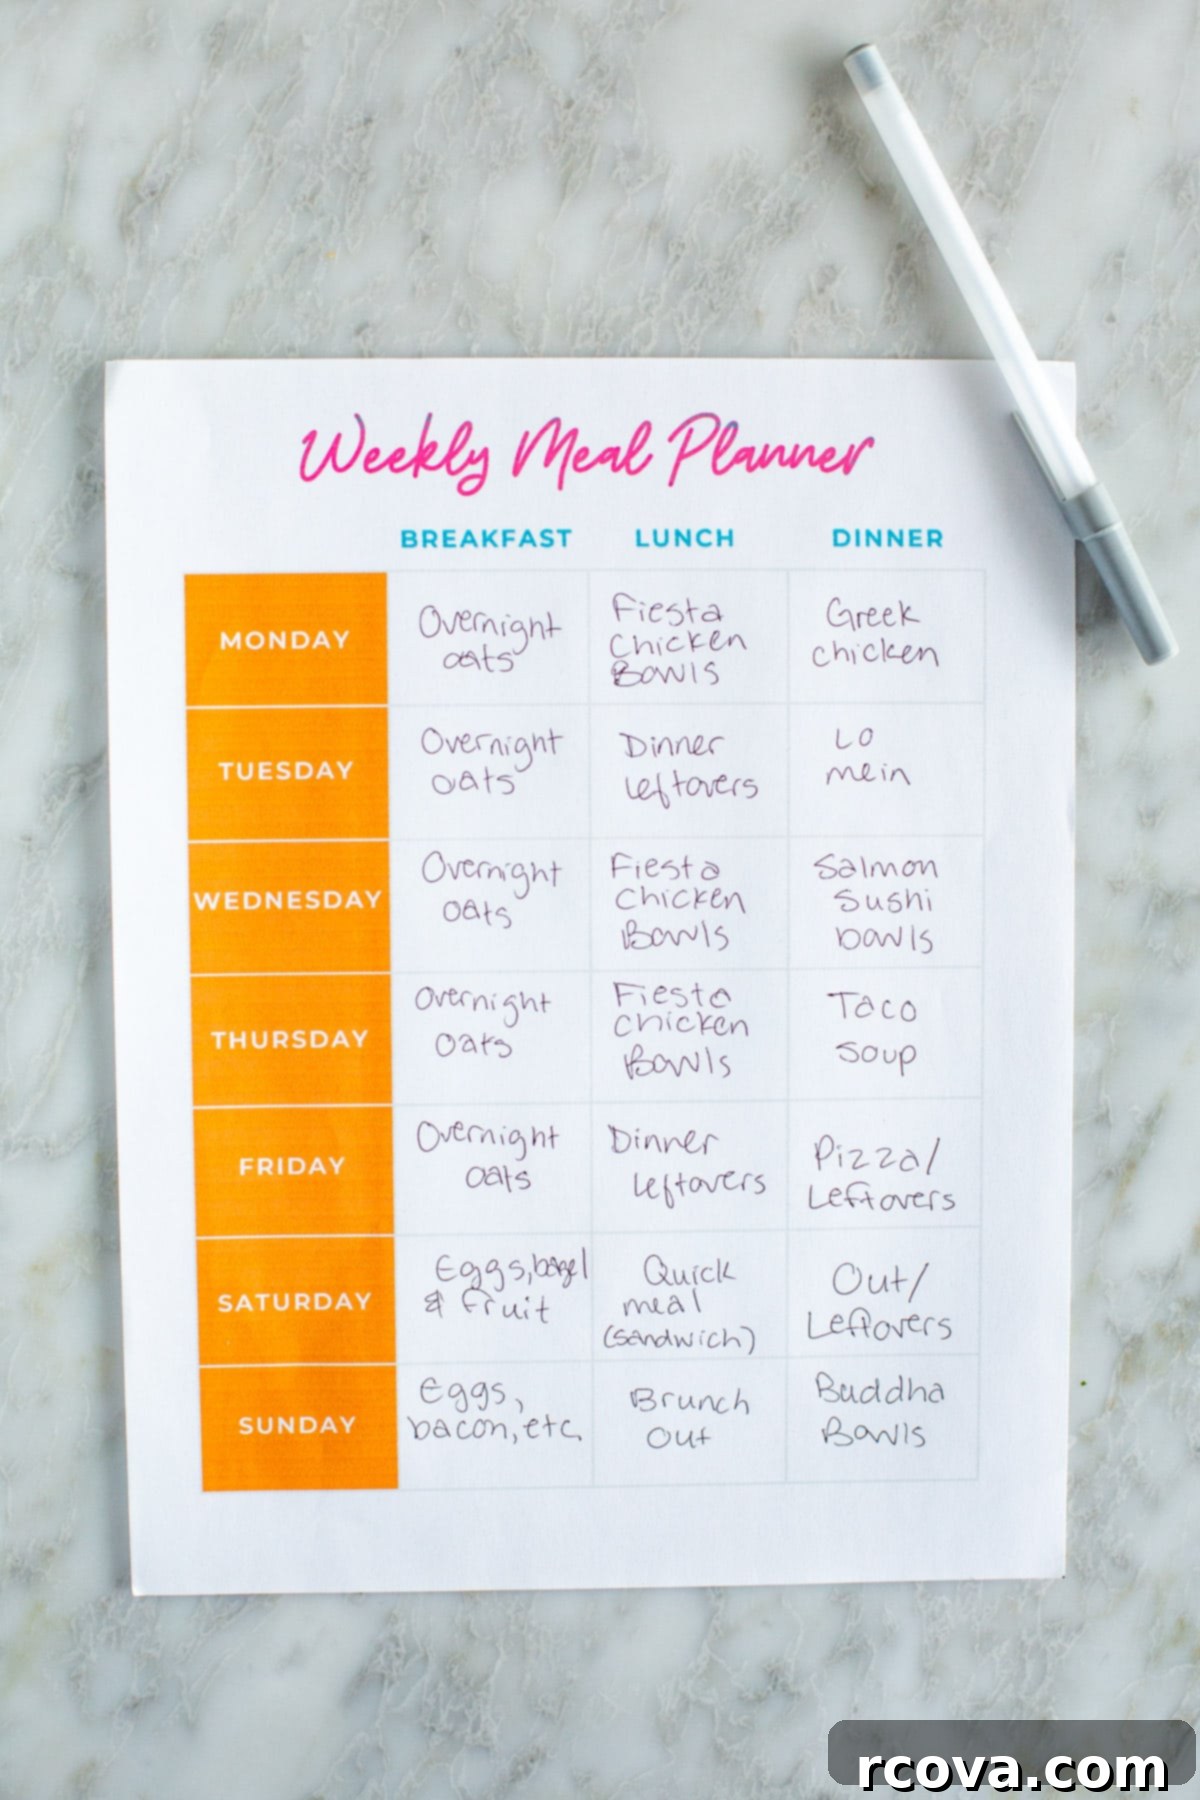 Weekly Meal Planner
BREAKFAST LUNCH DINNER
MONDAY
Overnight
oats
Fiesta
Chicken
Bowls
Greek
chicken
TUESDAY
Overnight
oats
Dinner
leftovers
Lo
mein
WEDNESDAY
Overnight
oats
Fiesta
Chicken
Bowls
Salmon
Sushi
bowls
THURSDAY
Overnight
oats
Fiesta
Chicken
Bowls
Taco
Soup
FRIDAY
Overnight
oats
Dinner
leftovers
Pizza/
Leftovers
SATURDAY
Eggs, bagel
& fruit
Quick
meal
(sandwich)
Out/
Leftovers
SUNDAY
Eggs,
bacon, etc.
Brunch
Out
Buddha
Bowls
rcova.com